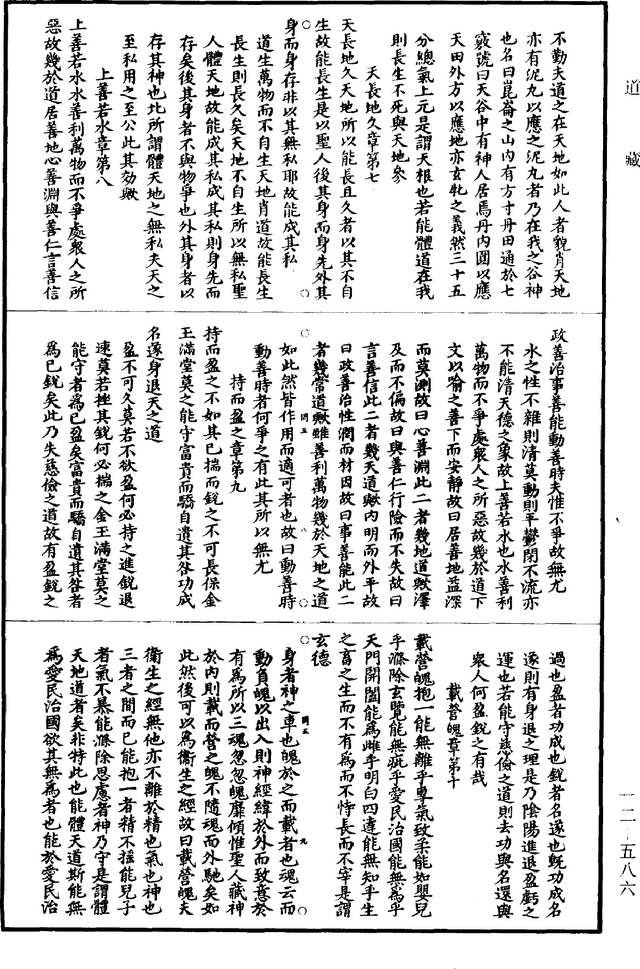 道藏
不勤夫道之在天地如此人者貌肖天地
亦有泥丸以應之泥丸者乃在我之谷神
也名曰崑崙之山内有方寸丹田通於七
竅號曰天谷中有神人居焉丹内圓以應
天田外方以應地亦玄牝之義然三十五
分總氣上元是謂天根也若能體道在我
則長生不死與天地參
天長地久章第七
天長地久天地所以能長且久者以其不自
生故能長生是以聖人後其身而身先外其
身而身存非以其無私耶故能成其私
道生萬物而不自生天地肖道故能長生
長生則長久矣天地不自生所以無私聖
人體天地故能成其私成其私則身先而
存矣後其身者不與物爭也外其身者以
存其神也比所謂體天地之無私夫天之
至私用之至公此其効歟
上善若水章第八
上善若水水善利萬物而不爭處衆人之所
惡故幾於道居善地心善淵與善仁言善信
政善治事善能動善時夫惟不爭故無尤
水之性不雜則清莫動則平鬱閉不流亦
不能清天德之象故上善若水也水善利
萬物而不爭處衆人之所惡故幾於道下
文以喻之善下而安靜故曰居善地益深
而莫測故曰心善淵此二者幾地道歟澤
及而不偏故曰與善仁行險而不失故曰
言善信此二者幾天道歟内明而外平故
曰政善治性潤而材因故曰事善能此二
者幾常道歟雖善利萬物幾於天地之道
如此然皆作用而適可者也故曰動善時
動善時者何爭之有此其所以無尤
持而盈之章第九
持而盈之不如其已揣而銳之不可長保金
玉滿堂莫之能守富貴而驕自遺其咎功成
名遂身退天之道
盈不可久莫若不欲盈何必持之進銳退
速莫若挫其銳何必揣之金玉滿堂莫之
能守者爲已盈矣富貴而驕自遺其咎者
爲已銳矣此乃失慈儉之道故有盈銳之
過也盈者功成也銳者名遂也旣功成名
遂則有身退之理是乃陰陽進退盈虧之
運也若能守慈儉之道則去功與名還與
衆人何盈銳之有哉
載營魄章第十
載營魄抱一能無離乎專氣致柔能如嬰兒
乎滌除玄覽能無疵乎愛民治國能無爲乎
天門開闔能爲雌乎明白四達能無知乎生
之畜之生而不有爲而不恃長而不宰是謂
玄德
身者神之車也魄於之而載者也魂云而
動負魄以出入則神經緯於外而致意於
有爲所以三魂忽忽魄靡傾惟聖人藏神
於内則載而營之魄不隨魂而外馳矣如
此然後可以爲衛生之經故曰載營魄夫
衛生之經無他亦不離於精也氣也神也
三者之間而已能抱一者精不搖能兒子
者氣不暴能滌除思慮者神乃守是謂體
天地道者矣非特此也能體天道斯能無
爲愛民治國欲其無爲者也能於愛民治
一二—五八六